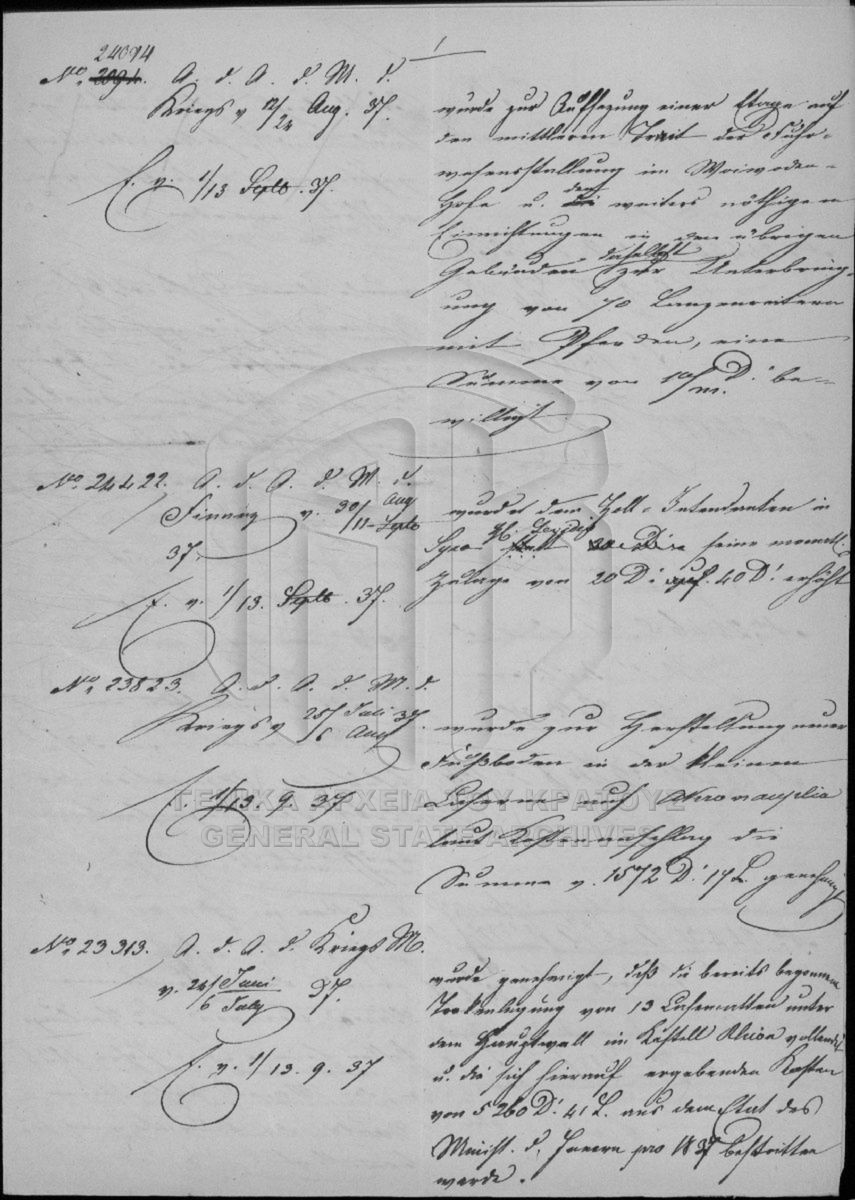 1
24094
No. 2094. A. d. A. d. M. d.
Kriegs v 12/24 Aug. 37.
E. v. 1/13 Septb. 37.
wurde zur Aufsezung einer Etage auf
den mittleren Trait der Fuhr-
wesensstallung im Woiwoden-
Hofe u. den weiters nöthigen
Einrichtungen in den übrigen
Gebäuden daselbst zur Unterbring-
ung von 70 Lanzenreitern
mit Pferden, eine
Summe von 10/m. D. be-
willigt.
No. 24422. A. d. A. d. M. d.
Finanz v. 30/11 Aug Septb
37.
E. v. 1/13. Septb. 37.
wurde dem Zoll-Intendanten in
Syra statt seine monatl.
Zulage von 20 D. auf 40 D. erhöht
No. 23823. A. d. A. d. M. d.
Kriegs v 25/6 Juli Aug 37.
E. 1/13. 9. 37.
wurde zur Herstellung neuer
Fußboden in der kleinen
Caserne auf Akronauplia
laut Kostenanschlag die
Summe v. 1572 D. 17 L. genehmigt
No. 23313. A. d. A. d. Kriegs M.
v. 24/6 Juni July 37.
E. v. 1/13. 9. 37
wurde genehmigt, daß die bereits begonnene
Trokenlegung von 13 Casematten unter
dem Hauptwall im Kastell Rhion vollendet
u. die sich hierauf ergebenden Kosten
von 5260 D. 41 L. aus dem Etat des
Minist. d. Innern pro 1837 bestritten
werde.
ΓΕΝΙΚΑ ΑΡΧΕΙΑ ΤΟΥ ΚΡΑΤΟΥΣ
GENERAL STATE ARCHIVES